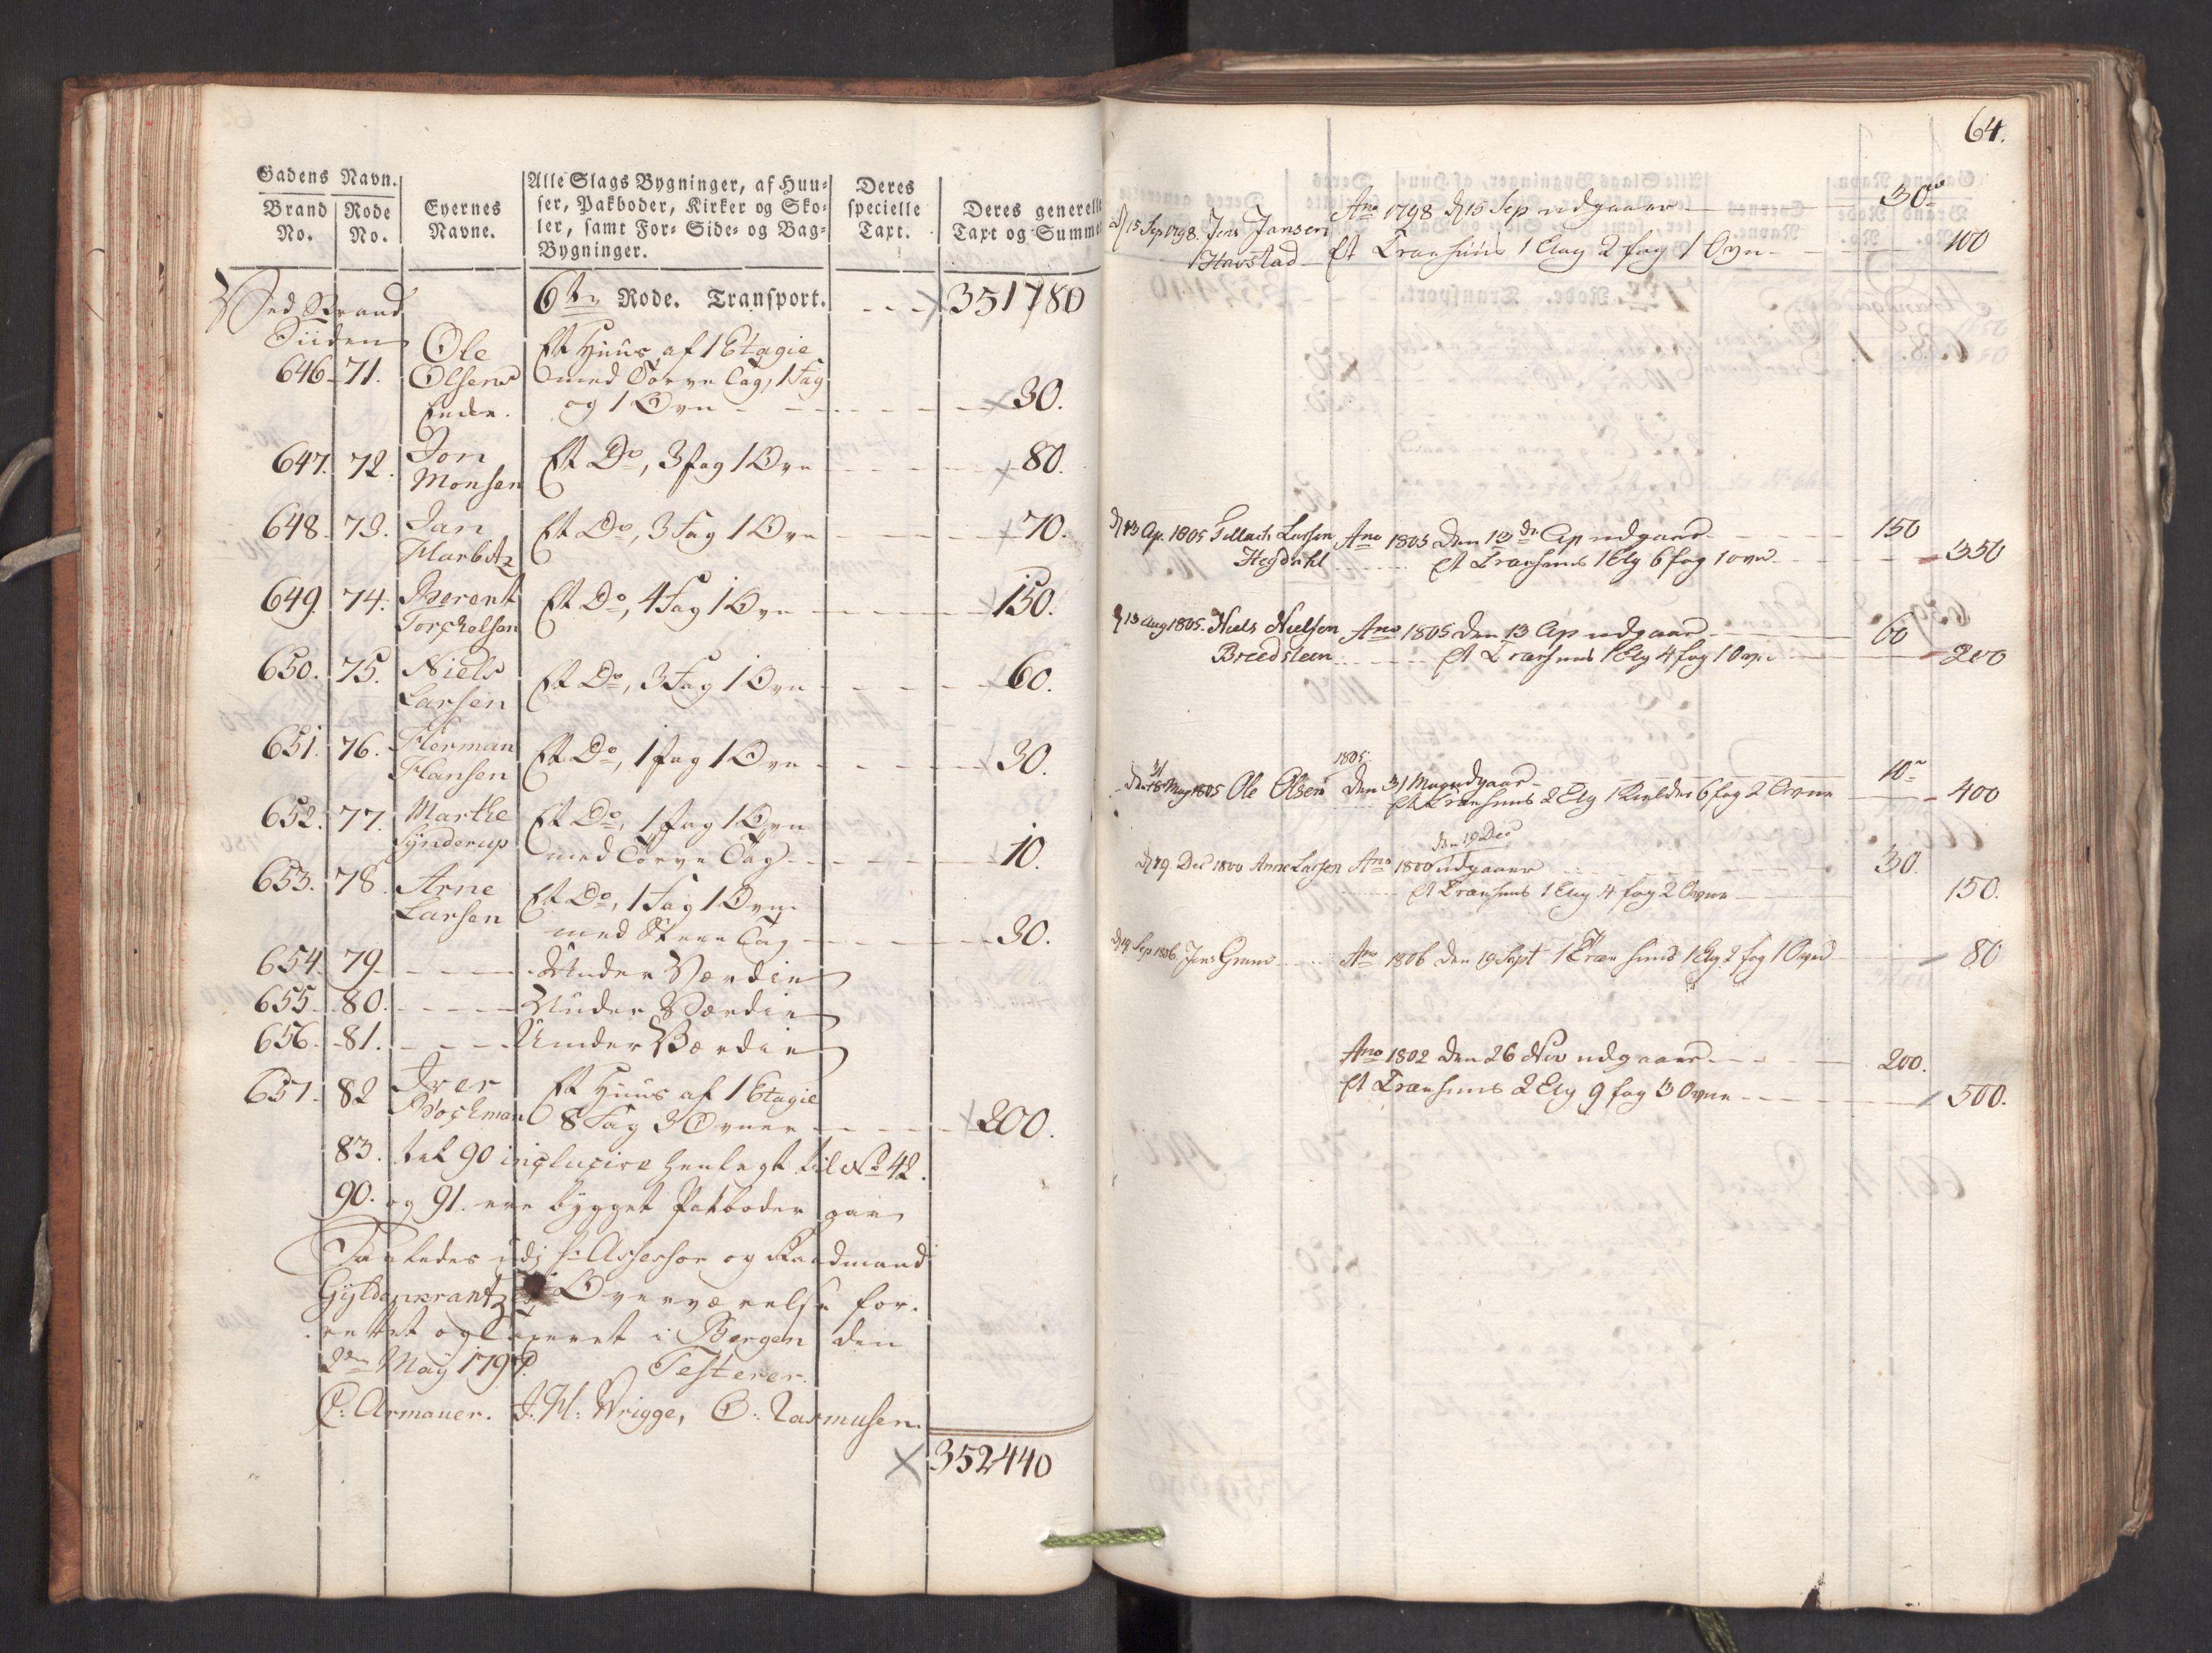 Gadens Navn.
Brand No.
Rode No.
Eyernes Navne.
Alle Slags Bygninger, af Huu-
ser, Pakboder, Kirker og Sko-
ler, samt For- Side- og Bag-
Bygninger.
Deres specielle Taxt.
Deres generelle
Taxt og Summe
Ved Brand 6te Rode. Transport. - - - 351780
Siiden
646 71. Ole Olsens Enke. Et Huus af 1 Etagie
med Torve Tag, 1 Fag
og 1 Ovn - - - 30.
647. 72. Jon Monsen Et Do, 3 fag 1 Ovn - - - 80.
648. 73. Jan Harbitz Et Do, 3 Fag 1 Ovn - - - 70.
649. 74. Berent Torckelsen Et Do, 4 Fag 1 Ovn - - - 150.
650. 75. Niels Larsen Et Do, 3 Fag 1 Ovn - - - 60.
651. 76. Herman Hansen Et Do, 1 fag 1 Ovn - - - 30.
652. 77. Marthe Synderup Et Do, 1 fag 1 Ovn
med Torve Tag - - - 10.
653. 78. Arne Larsen Et Do, 1 Fag 1 Ovn
med Steen Tag - - - 30.
654. 79. - - - Under Værdie
655. 80. - - - Under Værdie
656. 81. - - - Under Værdie
657. 82 Iver Bockman Et Huus af 1 Etagie
8 Fag 3 Ovner - - - 200.
83. tel 90 inclusive henlagt til No 42.
90. og 91. ere bygget Pakboder paa
Saaledes udj Hr Assessor og Raadmand
Gyldenkrantzes Overværelse for-
rettet og Taxeret i Bergen den
2den May 1797. Testerer.
C: Armauer. J. H: Wrigge, O: Rasmusen.
352440
64.
d 15 Sep 1798. Jens Jansen Havstad
Ano 1798 d 15 Sep udgaaer - - - 30
Et Træehuus 1 Etag 2 fag 1 Ovn - - - 100
d 13 Ap. 1805 Tellach Larsen Hegdahl
Ano 1805 den 13de Ap udgaar - - - 150
Et Træehuus 1 Etg 6 fag 1 ovn - - - 350
d 13 Aug 1805. Niels Nielsen Breedsteen
Ano 1805 den 13 Ap udgaar - - - 60
Et Træehuus 1 Etg 4 fag 1 Ovn - - - 200
1805
31 May 1805 Ole Olsen den 31 May udgaar - - - 10
Et Træehuus 2 Etg 1 Kielder 6 fag 2 Ovne - - - 400
den 19 Dec
d 19 Dec 1800 Anne Larsen Ano 1800 udgaaer - - - 30.
Et Træehuus 1 Etag 4 fag 2 Ovne - - - 150.
d 19 Sep 1806 Jens Gram Ano 1806 den 19 Sept 1 Træe huus 1 Etg 2 fag 1 Ovn - - - 80
Ano 1802 den 26 Nov udgaaer - - - 200.
Et Træehuus 2 Etg 9 fag 3 Ovne - - - 500.